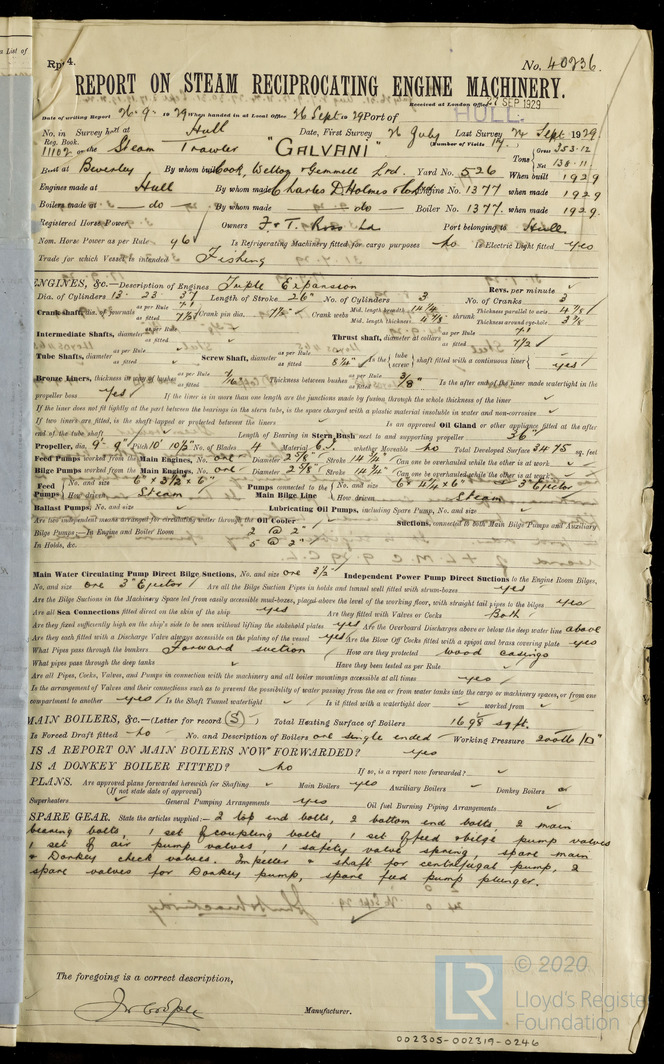 s List of
Rpt 4.
No. 40236.
REPORT ON STEAM RECIPROCATING ENGINE MACHINERY.
Received at London Office SEP 1929
Date of writing Report 26.9.1929 When handed in at Local Office 26 Sept 1929 Port of HULL
No. in Survey held at Hull Date, First Survey 26 July Last Survey 24 Sept 1929
Reg. Book. (Number of Visits 14.)
11102 on the Steam Trawler "GALVANI" Tons Gross 353.12 Net 138.11
Built at Beverley By whom built Cook, Welton & Gemmell Ltd. Yard No. 526 When built 1929
Engines made at Hull By whom made Charles D Holmes & Co Engine No. 1377 when made 1929
Boilers made at do By whom made do Boiler No. 1377. when made 1929.
Registered Horse Power Owners F. & T. Ross Ld Port belonging to Hull
Nom. Horse Power as per Rule 96 Is Refrigerating Machinery fitted for cargo purposes no Is Electric Light fitted yes
Trade for which Vessel is intended Fishing
ENGINES, &c.—Description of Engines Triple Expansion Revs. per minute
Dia. of Cylinders 13. 23 37 Length of Stroke 26" No. of Cylinders 3 No. of Cranks 3
Crank shaft, dia. of journals as per Rule 7.1 as fitted Crank pin dia. 7½" Crank webs Mid. length breadth 14¼ Mid. length thickness 4⅞ shrunk Thickness parallel to axis 4⅞ Thickness around eye-hole
Intermediate Shafts, diameter as per Rule as fitted Thrust shaft, diameter at collars as per Rule 7.1 as fitted 7½
Tube Shafts, diameter as per Rule as fitted Screw Shaft, diameter as per Rule as fitted 8¼" Is the tube screw shaft fitted with a continuous liner yes
Bronze Liners, thickness in way of bushes as per Rule as fitted Thickness between bushes as per Rule as fitted Is the after end of the liner made watertight in the
propeller boss yes If the liner is in more than one length are the junctions made by fusion through the whole thickness of the liner
If the liner does not fit tightly at the part between the bearings in the stern tube, is the space charged with a plastic material insoluble in water and non-corrosive
If two liners are fitted, is the shaft lapped or protected between the liners Is an approved Oil Gland or other appliance fitted at the after
end of the tube shaft Length of Bearing in Stern Bush next to and supporting propeller 36"
Propeller, dia. 9'-9" Pitch 10' 10½" No. of Blades 4 Material C.I. whether Moveable no Total Developed Surface 34.75 sq. feet
Feed Pumps worked from the Main Engines, No. one Diameter 2⅝" Stroke 14¼" Can one be overhauled while the other is at work
Bilge Pumps worked from the Main Engines, No. one Diameter 2⅝" Stroke 14¼" Can one be overhauled while the other is at work
Feed Pumps No. and size 6" × 3½" × 6" How driven Steam Pumps connected to the Main Bilge Line No. and size 6 × 4¼ × 6" 3" Ejector How driven Steam
Ballast Pumps, No. and size Lubricating Oil Pumps, including Spare Pump, No. and size
Are two independent means arranged for circulating water through the Oil Cooler Suctions, connected to both Main Bilge Pumps and Auxiliary
Bilge Pumps:—In Engine and Boiler Room 2 @ 2"
In Holds, &c. 5 @ 2"
Main Water Circulating Pump Direct Bilge Suctions, No. and size one 3½" Independent Power Pump Direct Suctions to the Engine Room Bilges,
No. and size one 3" Ejector Are all the Bilge Suction Pipes in holds and tunnel well fitted with strum-boxes yes
Are the Bilge Suctions in the Machinery Space led from easily accessible mud-boxes, placed above the level of the working floor, with straight tail pipes to the bilges yes
Are all Sea Connections fitted direct on the skin of the ship yes Are they fitted with Valves or Cocks Both
Are they fixed sufficiently high on the ship's side to be seen without lifting the stokehold plates yes Are the Overboard Discharges above or below the deep water line above
Are they each fitted with a Discharge Valve always accessible on the plating of the vessel yes Are the Blow Off Cocks fitted with a spigot and brass covering plate yes
What Pipes pass through the bunkers Forward suction How are they protected wood casings
What pipes pass through the deep tanks Have they been tested as per Rule
Are all Pipes, Cocks, Valves, and Pumps in connection with the machinery and all boiler mountings accessible at all times yes
Is the arrangement of Valves and their connections such as to prevent the possibility of water passing from the sea or from water tanks into the cargo or machinery spaces, or from one
compartment to another yes Is the Shaft Tunnel watertight Is it fitted with a watertight door worked from
MAIN BOILERS, &c.—(Letter for record (S)) Total Heating Surface of Boilers 1698 sq ft.
Is Forced Draft fitted no No. and Description of Boilers one single ended Working Pressure 200 lb/□"
IS A REPORT ON MAIN BOILERS NOW FORWARDED? yes
IS A DONKEY BOILER FITTED? no If so, is a report now forwarded?
PLANS. Are approved plans forwarded herewith for Shafting Main Boilers yes Auxiliary Boilers Donkey Boilers
(If not state date of approval)
Superheaters General Pumping Arrangements yes Oil fuel Burning Piping Arrangements
SPARE GEAR. State the articles supplied:— 2 top end bolts, 2 bottom end bolts, 2 main
bearing bolts, 1 set of coupling bolts, 1 set of feed & bilge pump valves
1 set of air pump valves, 1 safety valve spring, spare main
& Donkey check valves. Impeller & shaft for centrifugal pump, 2
spare valves for Donkey pump, spare feed pump plunger.
The foregoing is a correct description,
Manufacturer.
LR © 2020
Lloyd's Register
Foundation
002305-002319-0246